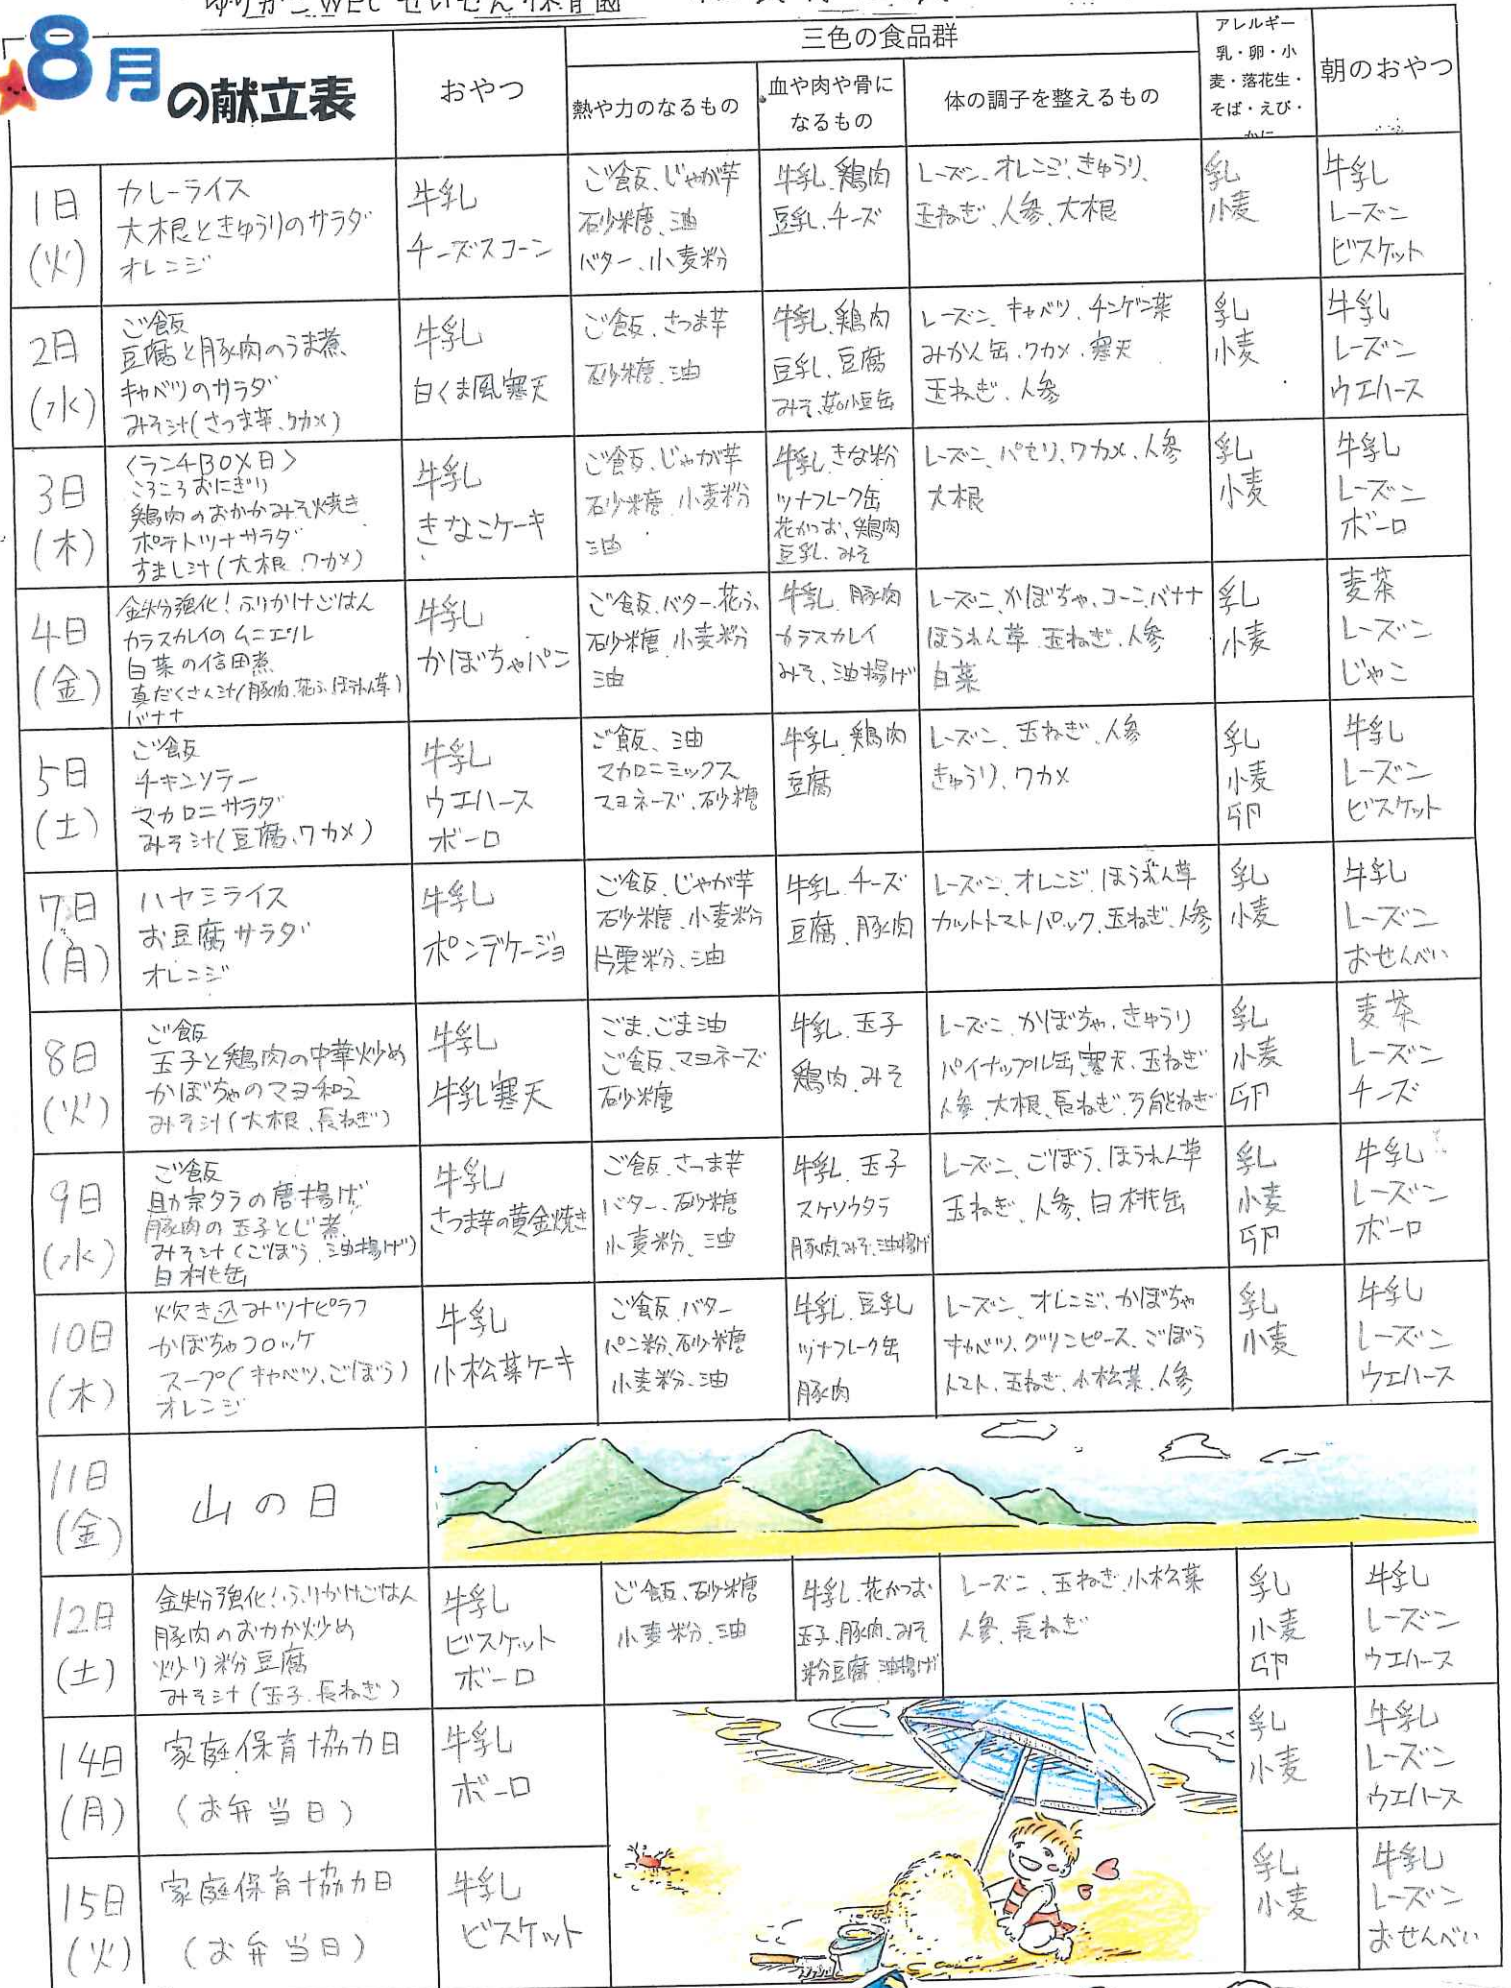 8月の献立表
おやつ
三色の食品群
熱や力のなるもの
血や肉や骨に
なるもの
体の調子を整えるもの
アレルギー
乳・卵・小
麦・落花生・
そば・えび・
かに
朝のおやつ
1日
(火)
カレーライス
大根ときゅうりのサラダ
オレンジ
牛乳
チーズスコーン
ご飯、じゃが芋
砂糖、油
バター、小麦粉
牛乳、鶏肉
豆乳、チーズ
レーズン、オレンジ、きゅうり、
玉ねぎ、人参、大根
乳
小麦
牛乳
レーズン
ビスケット
2日
(水)
ご飯
豆腐と豚肉のうま煮
キャベツのサラダ
みそ汁(さつま芋、ワカメ)
牛乳
白くま風寒天
ご飯、さつま芋
砂糖、油
牛乳、鶏肉
豆乳、豆腐
みそ、茹小豆缶
レーズン、キャベツ、チンゲン菜
みかん缶、ワカメ、寒天
玉ねぎ、人参
乳
小麦
牛乳
レーズン
ウエハース
3日
(木)
〈ランチBOX日〉
ころころおにぎり
鶏肉のおかかみそ焼き
ポテトツナサラダ
すまし汁(大根、ワカメ)
牛乳
きなこケーキ
ご飯、じゃが芋
砂糖、小麦粉
油
牛乳、きな粉
ツナフレーク缶
花かつお、鶏肉
豆乳、みそ
レーズン、パセリ、ワカメ、人参
大根
乳
小麦
牛乳
レーズン
ボーロ
4日
(金)
鉄分強化！ふりかけごはん
カラスカレイのムニエル
白菜の信田煮
具だくさん汁(豚肉、花ふ、ほうれん草)
バナナ
牛乳
かぼちゃパン
ご飯、バター、花ふ、
砂糖、小麦粉
油
牛乳、豚肉
カラスカレイ
みそ、油揚げ
レーズン、かぼちゃ、コーン、バナナ
ほうれん草、玉ねぎ、人参
白菜
乳
小麦
麦茶
レーズン
じゃこ
5日
(土)
ご飯
チキンソテー
マカロニサラダ
みそ汁(豆腐、ワカメ)
牛乳
ウエハース
ボーロ
ご飯、油
マカロニミックス
マヨネーズ、砂糖
牛乳、鶏肉
豆腐
レーズン、玉ねぎ、人参
きゅうり、ワカメ
乳
小麦
卵
牛乳
レーズン
ビスケット
7日
(月)
ハヤシライス
お豆腐サラダ
オレンジ
牛乳
ポンデケージョ
ご飯、じゃが芋
砂糖、小麦粉
片栗粉、油
牛乳、チーズ
豆腐、豚肉
レーズン、オレンジ、ほうれん草
カットトマトパック、玉ねぎ、人参
乳
小麦
牛乳
レーズン
おせんべい
8日
(火)
ご飯
玉子と鶏肉の中華炒め
かぼちゃのマヨ和え
みそ汁(大根、長ねぎ)
牛乳
牛乳寒天
ごま、ごま油
ご飯、マヨネーズ
砂糖
牛乳、玉子
鶏肉、みそ
レーズン、かぼちゃ、きゅうり
パイナップル缶、寒天、玉ねぎ
人参、大根、長ねぎ、万能ねぎ
乳
小麦
卵
麦茶
レーズン
チーズ
9日
(水)
ご飯
助宗タラの唐揚げ
豚肉の玉子とじ煮
みそ汁(ごぼう、油揚げ)
白桃缶
牛乳
さつま芋の黄金焼き
ご飯、さつま芋
バター、砂糖
小麦粉、油
牛乳、玉子
スケソウタラ
豚肉、みそ、油揚げ
レーズン、ごぼう、ほうれん草
玉ねぎ、人参、白桃缶
乳
小麦
卵
牛乳
レーズン
ボーロ
10日
(木)
炊き込みツナピラフ
かぼちゃコロッケ
スープ(キャベツ、ごぼう)
オレンジ
牛乳
小松菜ケーキ
ご飯、バター
パン粉、砂糖
小麦粉、油
牛乳、豆乳
ツナフレーク缶
豚肉
レーズン、オレンジ、かぼちゃ
キャベツ、グリンピース、ごぼう
トマト、玉ねぎ、小松菜、人参
乳
小麦
牛乳
レーズン
ウエハース
11日
(金)
山の日
12日
(土)
鉄分強化！ふりかけごはん
豚肉のおかか炒め
炒り粉豆腐
みそ汁(玉子、長ねぎ)
牛乳
ビスケット
ボーロ
ご飯、砂糖
小麦粉、油
牛乳、花かつお
玉子、豚肉、みそ
粉豆腐、油揚げ
レーズン、玉ねぎ、小松菜
人参、長ねぎ
乳
小麦
卵
牛乳
レーズン
ウエハース
14日
(月)
家庭保育協力日
(お弁当日)
牛乳
ボーロ
乳
小麦
牛乳
レーズン
ウエハース
15日
(火)
家庭保育協力日
(お弁当日)
牛乳
ビスケット
乳
小麦
牛乳
レーズン
おせんべい